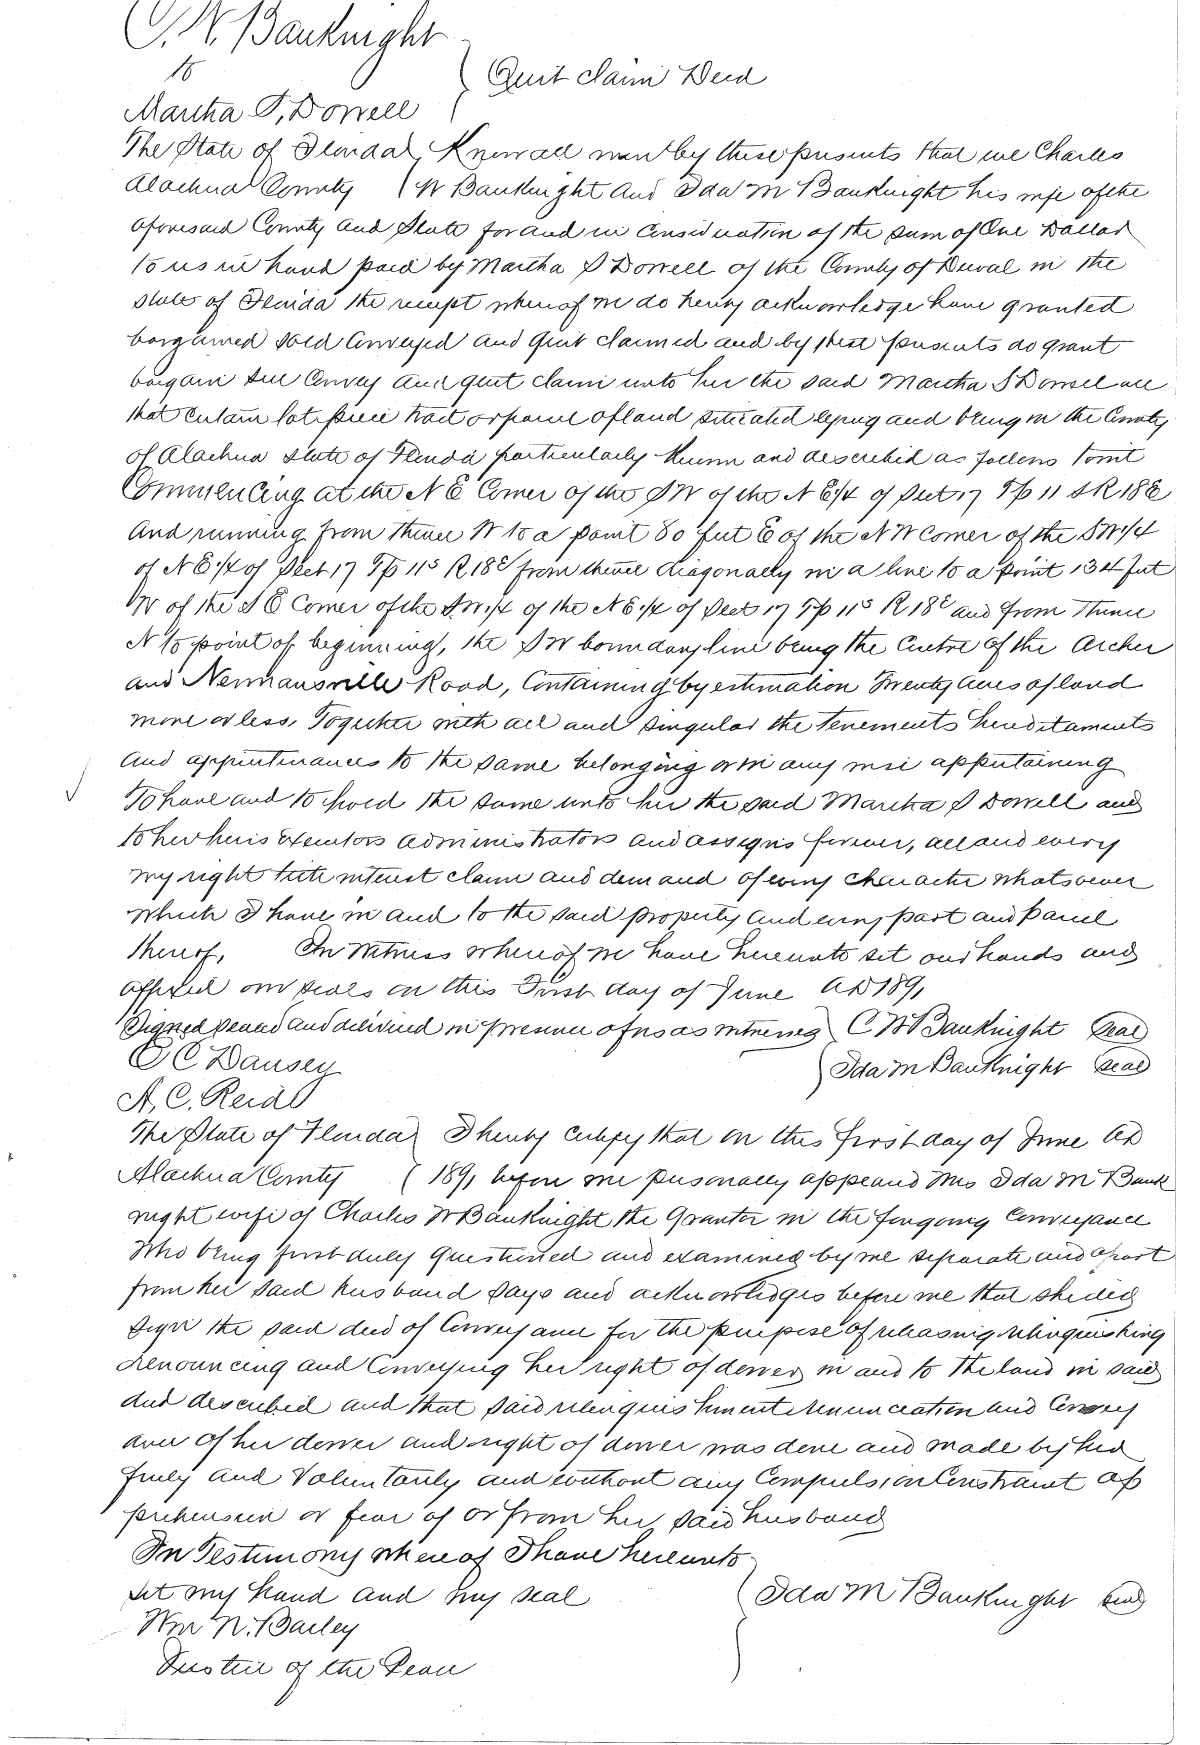 C. W. BanKnight
to
Quit Claim Deed
Martha S, Dowell
The State of Florida Know all men by these presents that we Charles
Alachua County W BanKnight and Ida M BanKnight his wife of the
aforesaid County and State for and in Consideration of the sum of One Dollar
to us in hand paid by Martha S Dowell of the County of Duval in the
state of Florida the receipt whereof we do hereby acknowledge have granted
bargained sold Conveyed and quit claimed and by these presents do grant
bargain sell Convey and quit claim unto her the said Martha S Dowell all
that certain lot piece tract or parcel of land situated lying and being in the County
of Alachua state of Florida particularly known and described as follows towit
Commencing at the N E Corner of the SW of the N E 1/4 of Sect 17 Tp 11 S R 18 E
and running from thence W to a point 80 feet E of the N W Corner of the SW 1/4
of N E 1/4 of Sect 17 Tp 11 S R 18 E from thence diagonally in a line to a point 134 feet
W of the S E Corner of the S.W 1/4 of the N E 1/4 of Sect 17 Tp 11 S R 18 E and from thence
N to point of beginning, the SW boundary line being the Centre of the Archer
and Newnansville Road, Containing by estimation Twenty acres of land
more or less, Together with all and singular the tenements hereditaments
and appurtenances to the same belonging or in any wise appertaining
To have and to hold the same unto her the said Martha S Dowell and
to her heirs executors administrators and assigns forever, all and every
my right title interest claim and demand of every character whatsoever
which I have in and to the said property and every part and parcel
thereof, In witness whereof we have hereunto set our hands and
affixed our seals on this First day of June AD 1891
Signed sealed and delivered in presence of us as witnesses C W BanKnight Seal
C Dansey Ida M BanKnight Seal
A, C. Reid
The State of Florida I hereby Certify that on this first day of June AD
Alachua County 1891 before me personally appeared Mrs Ida M Bank
night wife of Charles W BanKnight the Grantor in the foregoing Conveyance
who being first duly questioned and examined by me separate and apart
from her said husband says and acknowledges before me that she did
sign the said deed of Conveyance for the purpose of releasing relinquishing
renouncing and Conveying her right of dower in and to the land in said
deed described and that said relinquishment renunciation and Convey
ance of her dower and right of dower was done and made by her
freely and Voluntarily and without any Compulsion Constraint ap
prehension or fear of or from her said husband
In Testimony whereof I have hereunto
set my hand and my seal Ida M BanKnight Seal
Wm N. Bailey
Justice of the Peace